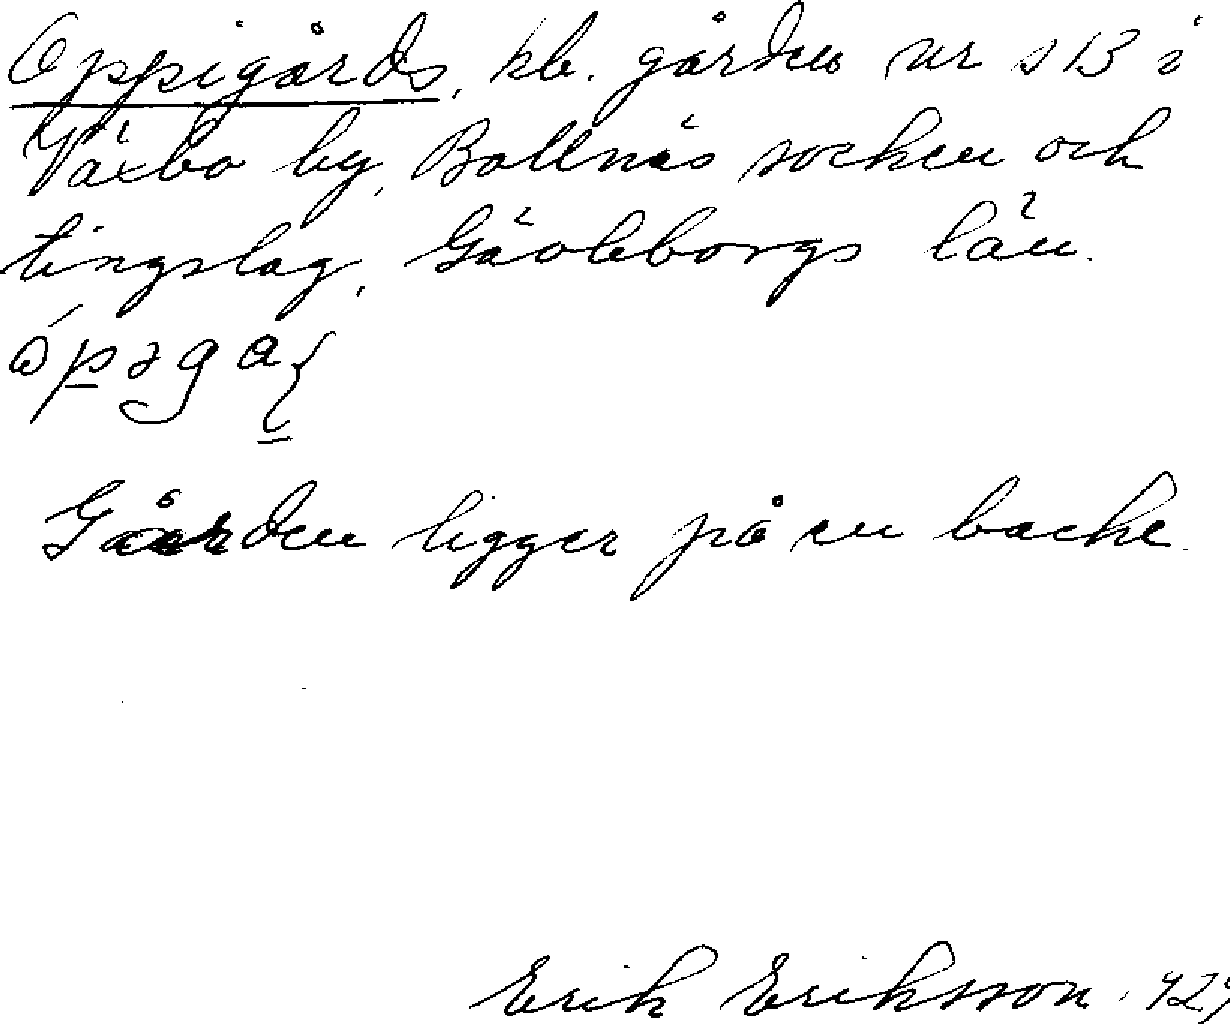 Oppigårds, kb. gården nr 1 B i
Växbo by, Bollnäs socken och
tingslag, Gävleborgs län.
Gården ligger på en backe.
Erik Eriksson.